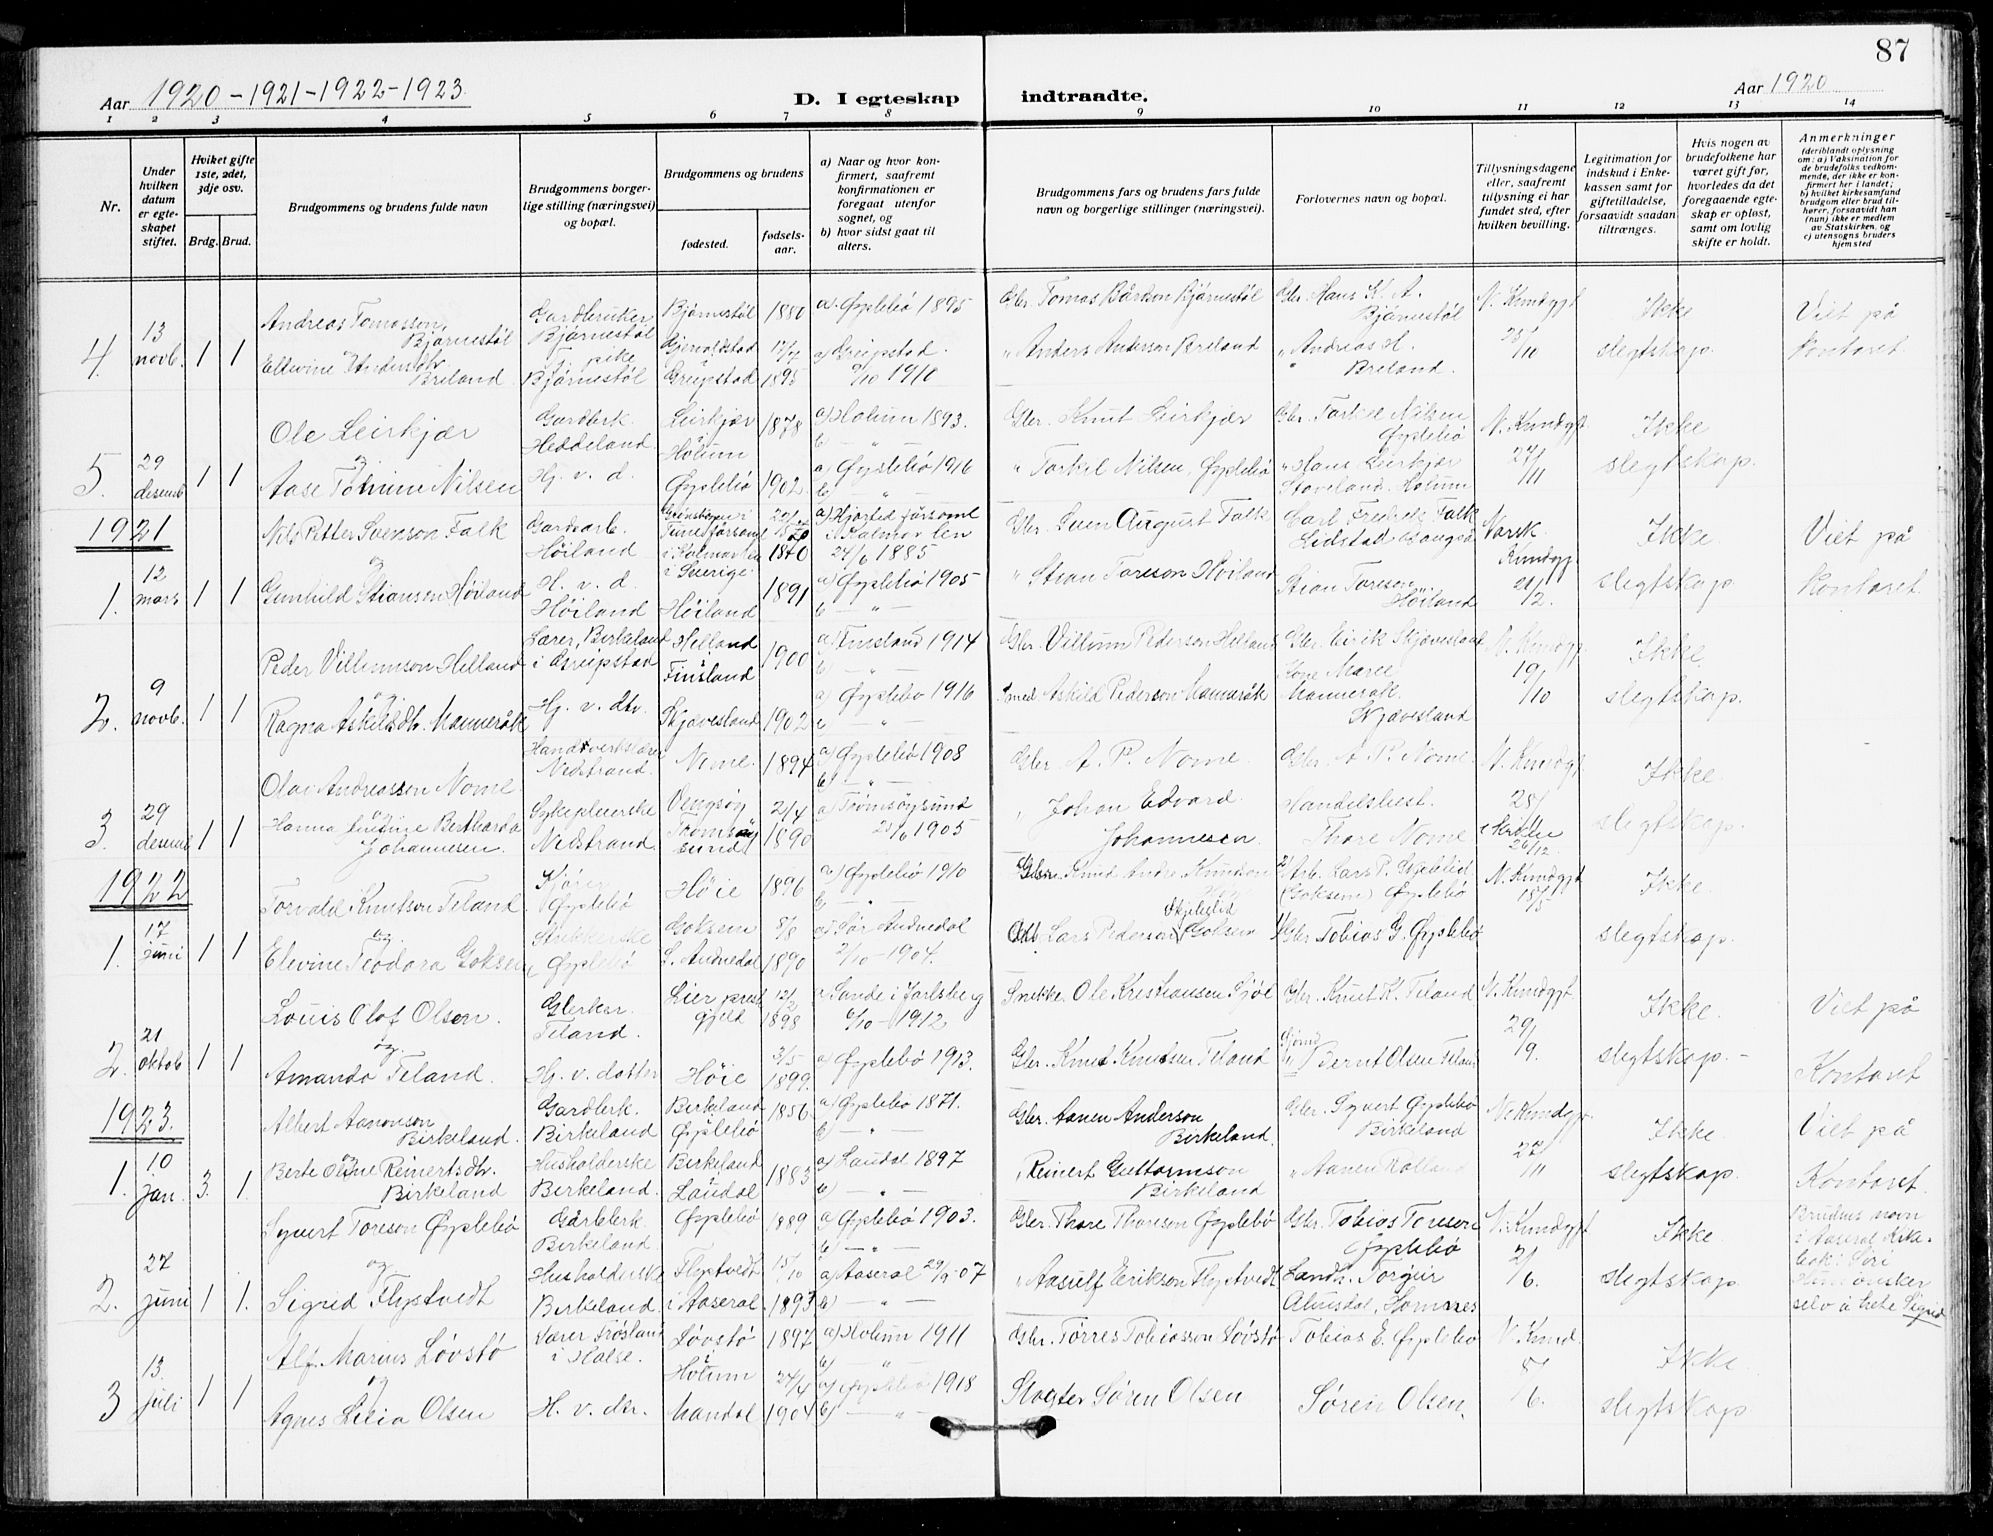 87
Aar 1920 - 1921 - 1922 - 1923
D. I egteskap indtraadte.
Aar 1920
1 2 3 4 5 6 7 8 9 10 11 12 13 14
Nr.
Under hvilken datum er egteskapet stiftet.
Hviket gifte 1ste, 2det, 3dje osv.
Brdg. Brud.
Brudgommens og brudens fulde navn
Brudgommens borgerlige stilling (næringsvei) og bopæl.
Brudgommens og brudens
fødested.
fødselsaar.
a) Naar og hvor konfirmert, saafremt konfirmationen er foregaat utenfor sognet, og
b) hvor sidst gaat til alters.
Brudgommens fars og brudens fars fulde navn og borgerlige stillinger (næringsvei).
Forlovernes navn og bopæl.
Tillysningsdagene eller, saafremt tillysning ei har fundet sted, efter hvilken bevilling.
Legitimation for indskud i Enkekassen samt for giftetilladelse, forsaavidt saadan tiltrænges.
Hvis nogen av brudefolkene har været gift før, hvorledes da det foregaaende egteskap er opløst, samt om lovlig skifte er holdt.
Anmerkninger
(deriblandt oplysning om: a) Vaksination for de brudefolks vedkommende, der ikke er konfirmert her i landet; b) hvilket kirkesamfund brudgom eller brud tilhører, forsaavidt han (hun) ikke er medlem av Statskirken, og c) utensogns bruders hjemsted
4. 13 novb. 1 1
Andreas Tomasson, Bjørnestøl
Gardbruker Bjørnestøl
Bjørnestøl 1880
a) Øyslebø 1895
Gbr. Tomas Bårdson Bjørnestøl
Gbr. Hans K. A. Bjørnestøl
N. Kundgjt 25/10
Ikke slegtskap.
Viet på kontoret.
og
Breland
pike Bjørnestøl
Greipstad 17/7 1895
a) Greipstad. 9/10 1910
" Anders Anderson Breland
" Andreas A. Breland.
5. 29 desemb 1 1
Ole Leirkjær
Gardbrk. Heddeland.
Leirkjær i Holum 1878
a) Holum 1893.
b) — " —
Gbr. Knut Leirkjær
Gbr. Torkel Nilsen Øyslebø
N. Kundgjt 27/11
Ikke slegtskap.
og
Aase Tomine Nilsen
Hj. v. d.
Øyslebø 1902.
a) Øyslebø 1916
b) — " —
" Torkel Nilsen, Øyslebø
" Hans Leirkjær Staveland, Holum
1921
1. 12 mars 1 1
Nils Petter Svenson Falk
Gardsarb. Høiland
i Kalmar len i Sverige. 1870
a) Hjorted församl i Kalmar len 24/6 1885
Gbr. Sven August Falk
Carl Fredrik Falk
Norsk Kundgjt 21/2.
Ikke slegtskap.
Viet på kontoret.
og
Gunhild Stiansen Høiland
H. v. d. Høiland
Høiland 1891
a) Øyslebø 1905
b) — " —
" Stian Toreson Høiland
Stian Toreson Høiland
2. 9 novb. 1 1
Peder Villumson Helland
Lærer, Birkeland i Greipstad
Helland Finsland 1900
a) Finsland 1914
b) — " —
Gbr. Villum Pederson Helland
Gbr. Eirik Skjævesland
N. Kundgjt. 19/10
Ikke slegtskap.
og
Ragna Askilsdtr. Manneråk
Hj. v. dtr.
Skjævesland 1902
a) Øyslebø 1916
b) — " —
Smed Askild Pederson Manneråk
Kone Maree Manneråk. Skjævesland
3. 29 desemb 1 1
Olav Andreassen Nome.
Nedstrand.
Nome. 1894
a) Øyslebø 1908
b) — " —
Gbr. A. P. Nome.
Gbr. A. P. Nome.
N. Kundgjt. 28/11
26/12.
Ikke slegtskap.
og
Hanna Bertharda Johannesen
Sykepleierske Nedstrand.
Vengsøy Tromsøysund 2/4 1890
a) Tromsøysund 20/6 1905
" Johan Edvard Johannesen
Handelsbest. Thore Nome
1922
1. 17 juni 1 1
Torvald Knutson Teland
Øyslebø
Høie 1896
a) Øyslebø 1910
b) — " —
Gbr. Knud Andre Knudson Høy
2) Arb. Lars P. Skjeblid (Goksem) Øyslebø
N. Kundgjt 18/5
Ikke slegtskap.
og
Elevine Teodora Goksem
Øyslebø
Goksem S. Audnedal 8/8 1890
a) Sør Audnedal 2/10 - 1904.
Lars Pederson Skjeblid Goksem
1) Gbr Tobias G. Øyslebø
2. 21 oktob 1 1
Louis Olaf Olsen.
Teland.
Lier prestgjeld 12/2 1898
a) Sande i Jarlsberg 6/10 - 1912
Snekker Ole Kristiansen Sjøl
Gbr. Knut K. Teland
N. Kundgjt. 29/9.
Ikke slegtskap. -
Viet på Kontoret
og
Amanda Teland.
Hj. v. dotter
Høie 3/5 1899.
a) Øyslebø 1913.
Gbr. Knut Knutsen Teland
Bernt Olsen Teland
1923.
1. 10 jan. 3. 1.
Albert Aanonson Birkeland.
Gardbrk. Birkeland.
Birkeland Øyslebø 1856
a) Øyslebø 1871.
b) — " —
Gbr. Aanen Anderson Birkeland.
Gbr. Syvert Øyslebø Birkeland
N. Kundgjt. 27/11
Ikke slegtskap.
Viet på Kontoret.
og
Berte Oline Reinertsdtr. Birkeland
Husholderske Birkeland.
Birkeland i Laudal 1883
a) Laudal 1897
b) — " —
" Reinert Guttormson Birkeland
" Aanen Rolland
2. 27 juni 1 1.
Syvert Toreson Øyslebø
Gårdbrk. Birkeland.
Øyslebø 1889
a) Øyslebø 1903.
b) — " —
Gbr. Thore Thoreson Øyslebø
Gbr. Tobias Toresen Øyslebø
N. Kundgjt 2/6.
Ikke slegtskap.
Brudens navn i Aaseral Kirkebok: Siri Hun ønsker selv å hete Sigrid
og
Sigrid Flystvedt
Husholderske Birkeland.
Flystvedt i Aaseral. 15/10 1893
a) Aaseral 29/9 - 07
b) — " —
" Aasulf Eirikson Flystvedt
Landh. Torgeir Almedal, Homnes
3 13. juli 1 1
Alf Marius Løvstø
Lærer Frøsland i Halse.
Løvstø i Holum 1897
a) Holum 1911
b) — " —
Gbr. Tørres Tobiasson Løvstø
Tobias E. Øyslebø
N. Kund. 8/6.
Ikke slegtskap.
og
Agnes Lilia Olsen
H. v. dtr.
Mandal 24/4 1904
a) Øyslebø 1918
b) — " —
Slagter Søren Olsen
Søren Olsen.